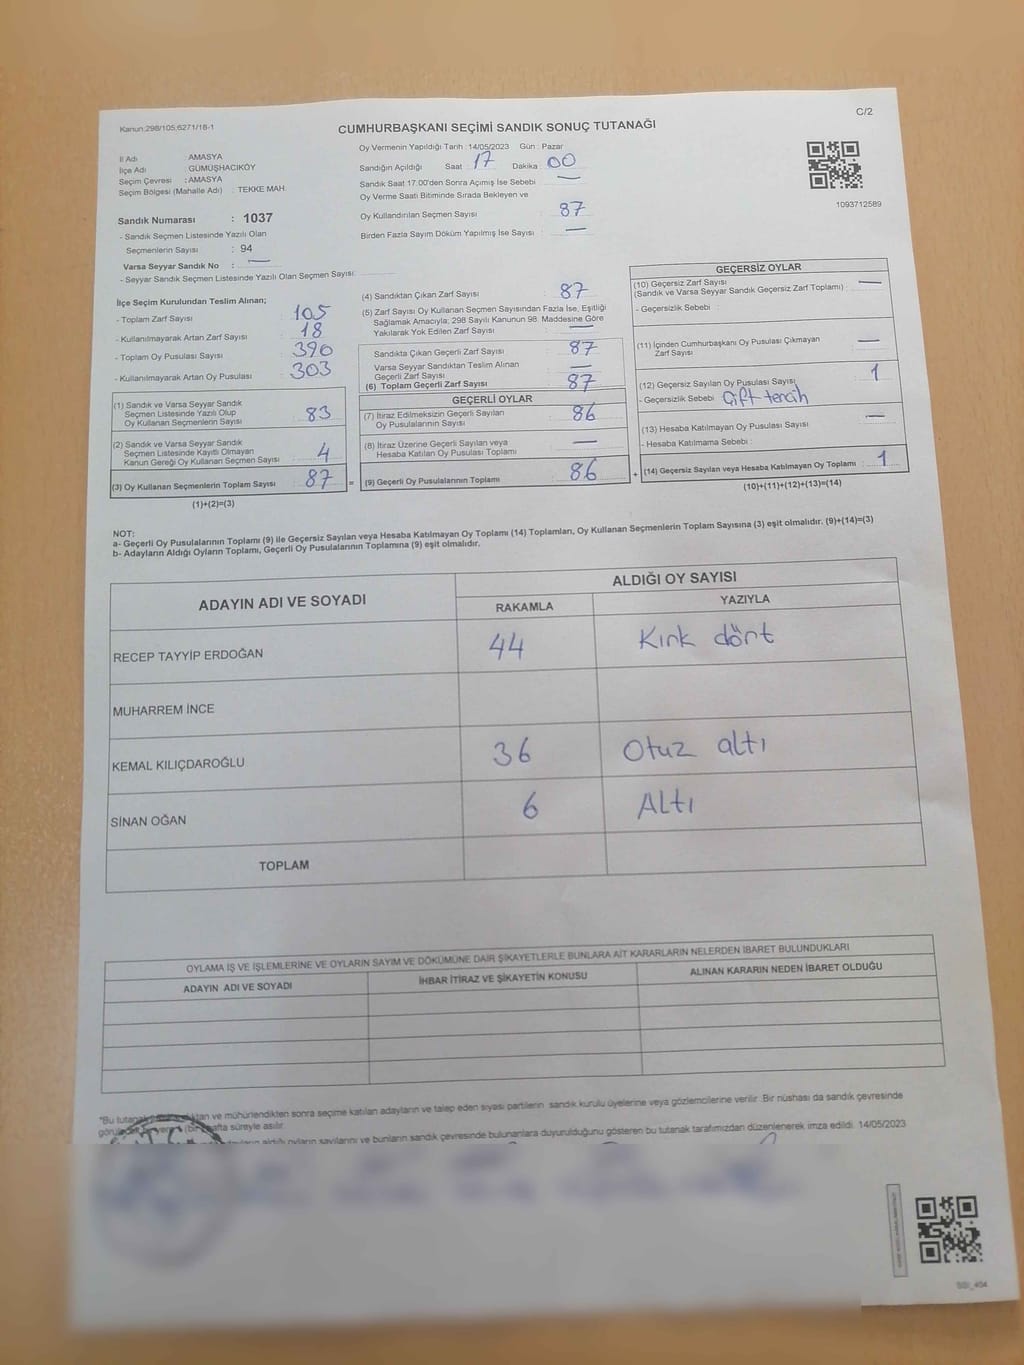 Kanun:298/105,6271/18-1
C/2
CUMHURBAŞKANI SEÇİMİ SANDIK SONUÇ TUTANAĞI
İl Adı : AMASYA
İlçe Adı : GÜMÜŞHACIKÖY
Seçim Çevresi : AMASYA
Seçim Bölgesi (Mahalle Adı) : TEKKE MAH.
Sandık Numarası : 1037
- Sandık Seçmen Listesinde Yazılı Olan
Seçmenlerin Sayısı : 94
Varsa Seyyar Sandık No : —
- Seyyar Sandık Seçmen Listesinde Yazılı Olan Seçmen Sayısı:
Oy Vermenin Yapıldığı Tarih : 14/05/2023 Gün : Pazar
Sandığın Açıldığı Saat : 17 Dakika : 00
Sandık Saat 17:00'den Sonra Açımış İse Sebebi : —
Oy Verme Saati Bitiminde Sırada Bekleyen ve
Oy Kullandırılan Seçmen Sayısı : 87
Birden Fazla Sayım Döküm Yapılmış İse Sayısı : —
1093712589
İlçe Seçim Kurulundan Teslim Alınan;
- Toplam Zarf Sayısı : 105
- Kullanılmayarak Artan Zarf Sayısı : 18
- Toplam Oy Pusulası Sayısı : 390
- Kullanılmayarak Artan Oy Pusulası : 303
(1) Sandık ve Varsa Seyyar Sandık
Seçmen Listesinde Yazılı Olup
Oy Kullanan Seçmenlerin Sayısı : 83
(2) Sandık ve Varsa Seyyar Sandık
Seçmen Listesinde Kayıtlı Olmayan
Kanun Gereği Oy Kullanan Seçmen Sayısı : 4
(3) Oy Kullanan Seçmenlerin Toplam Sayısı : 87 =
(1)+(2)=(3)
(4) Sandıktan Çıkan Zarf Sayısı : 87
(5) Zarf Sayısı Oy Kullanan Seçmen Sayısından Fazla İse, Eşitliği
Sağlamak Amacıyla; 298 Sayılı Kanunun 98. Maddesine Göre
Yakılarak Yok Edilen Zarf Sayısı : —
Sandıkta Çıkan Geçerli Zarf Sayısı : 87
Varsa Seyyar Sandıktan Teslim Alınan
Geçerli Zarf Sayısı : —
(6) Toplam Geçerli Zarf Sayısı : 87
GEÇERLİ OYLAR
(7) İtiraz Edilmeksizin Geçerli Sayılan
Oy Pusulalarının Sayısı : 86
(8) İtiraz Üzerine Geçerli Sayılan veya
Hesaba Katılan Oy Pusulası Toplamı : —
(9) Geçerli Oy Pusulalarının Toplamı : 86 +
GEÇERSİZ OYLAR
(10) Geçersiz Zarf Sayısı
(Sandık ve Varsa Seyyar Sandık Geçersiz Zarf Toplamı) : —
- Geçersizlik Sebebi :
(11) İçinden Cumhurbaşkanı Oy Pusulası Çıkmayan
Zarf Sayısı : —
(12) Geçersiz Sayılan Oy Pusulası Sayısı : 1
- Geçersizlik Sebebi : Çift tercih
(13) Hesaba Katılmayan Oy Pusulası Sayısı : —
- Hesaba Katılmama Sebebi :
(14) Geçersiz Sayılan veya Hesaba Katılmayan Oy Toplamı : 1
(10)+(11)+(12)+(13)=(14)
NOT:
a- Geçerli Oy Pusulalarının Toplamı (9) ile Geçersiz Sayılan veya Hesaba Katılmayan Oy Toplamı (14) Toplamları, Oy Kullanan Seçmenlerin Toplam Sayısına (3) eşit olmalıdır. (9)+(14)=(3)
b- Adayların Aldığı Oyların Toplamı, Geçerli Oy Pusulalarının Toplamına (9) eşit olmalıdır.
ADAYIN ADI VE SOYADI
ALDIĞI OY SAYISI
RAKAMLA YAZIYLA
RECEP TAYYİP ERDOĞAN 44 Kırk dört
MUHARREM İNCE
KEMAL KILIÇDAROĞLU 36 Otuz altı
SİNAN OĞAN 6 Altı
TOPLAM
OYLAMA İŞ VE İŞLEMLERİNE VE OYLARIN SAYIM VE DÖKÜMÜNE DAİR ŞİKAYETLERLE BUNLARA AİT KARARLARIN NELERDEN İBARET BULUNDUKLARI
ADAYIN ADI VE SOYADI İHBAR İTİRAZ VE ŞİKAYETİN KONUSU ALINAN KARARIN NEDEN İBARET OLDUĞU
*Bu tutanak ve mühürlendikten sonra seçime katılan adayların ve talep eden siyasi partilerin sandık kurulu üyelerine veya gözlemcilerine verilir. Bir nüshası da sandık çevresinde
süreyle asılır.
aldığı oyların sayılarını ve bunların sandık çevresinde bulunanlara duyurulduğunu gösteren bu tutanak tarafımızdan düzenlenerek imza edildi. 14/05/2023